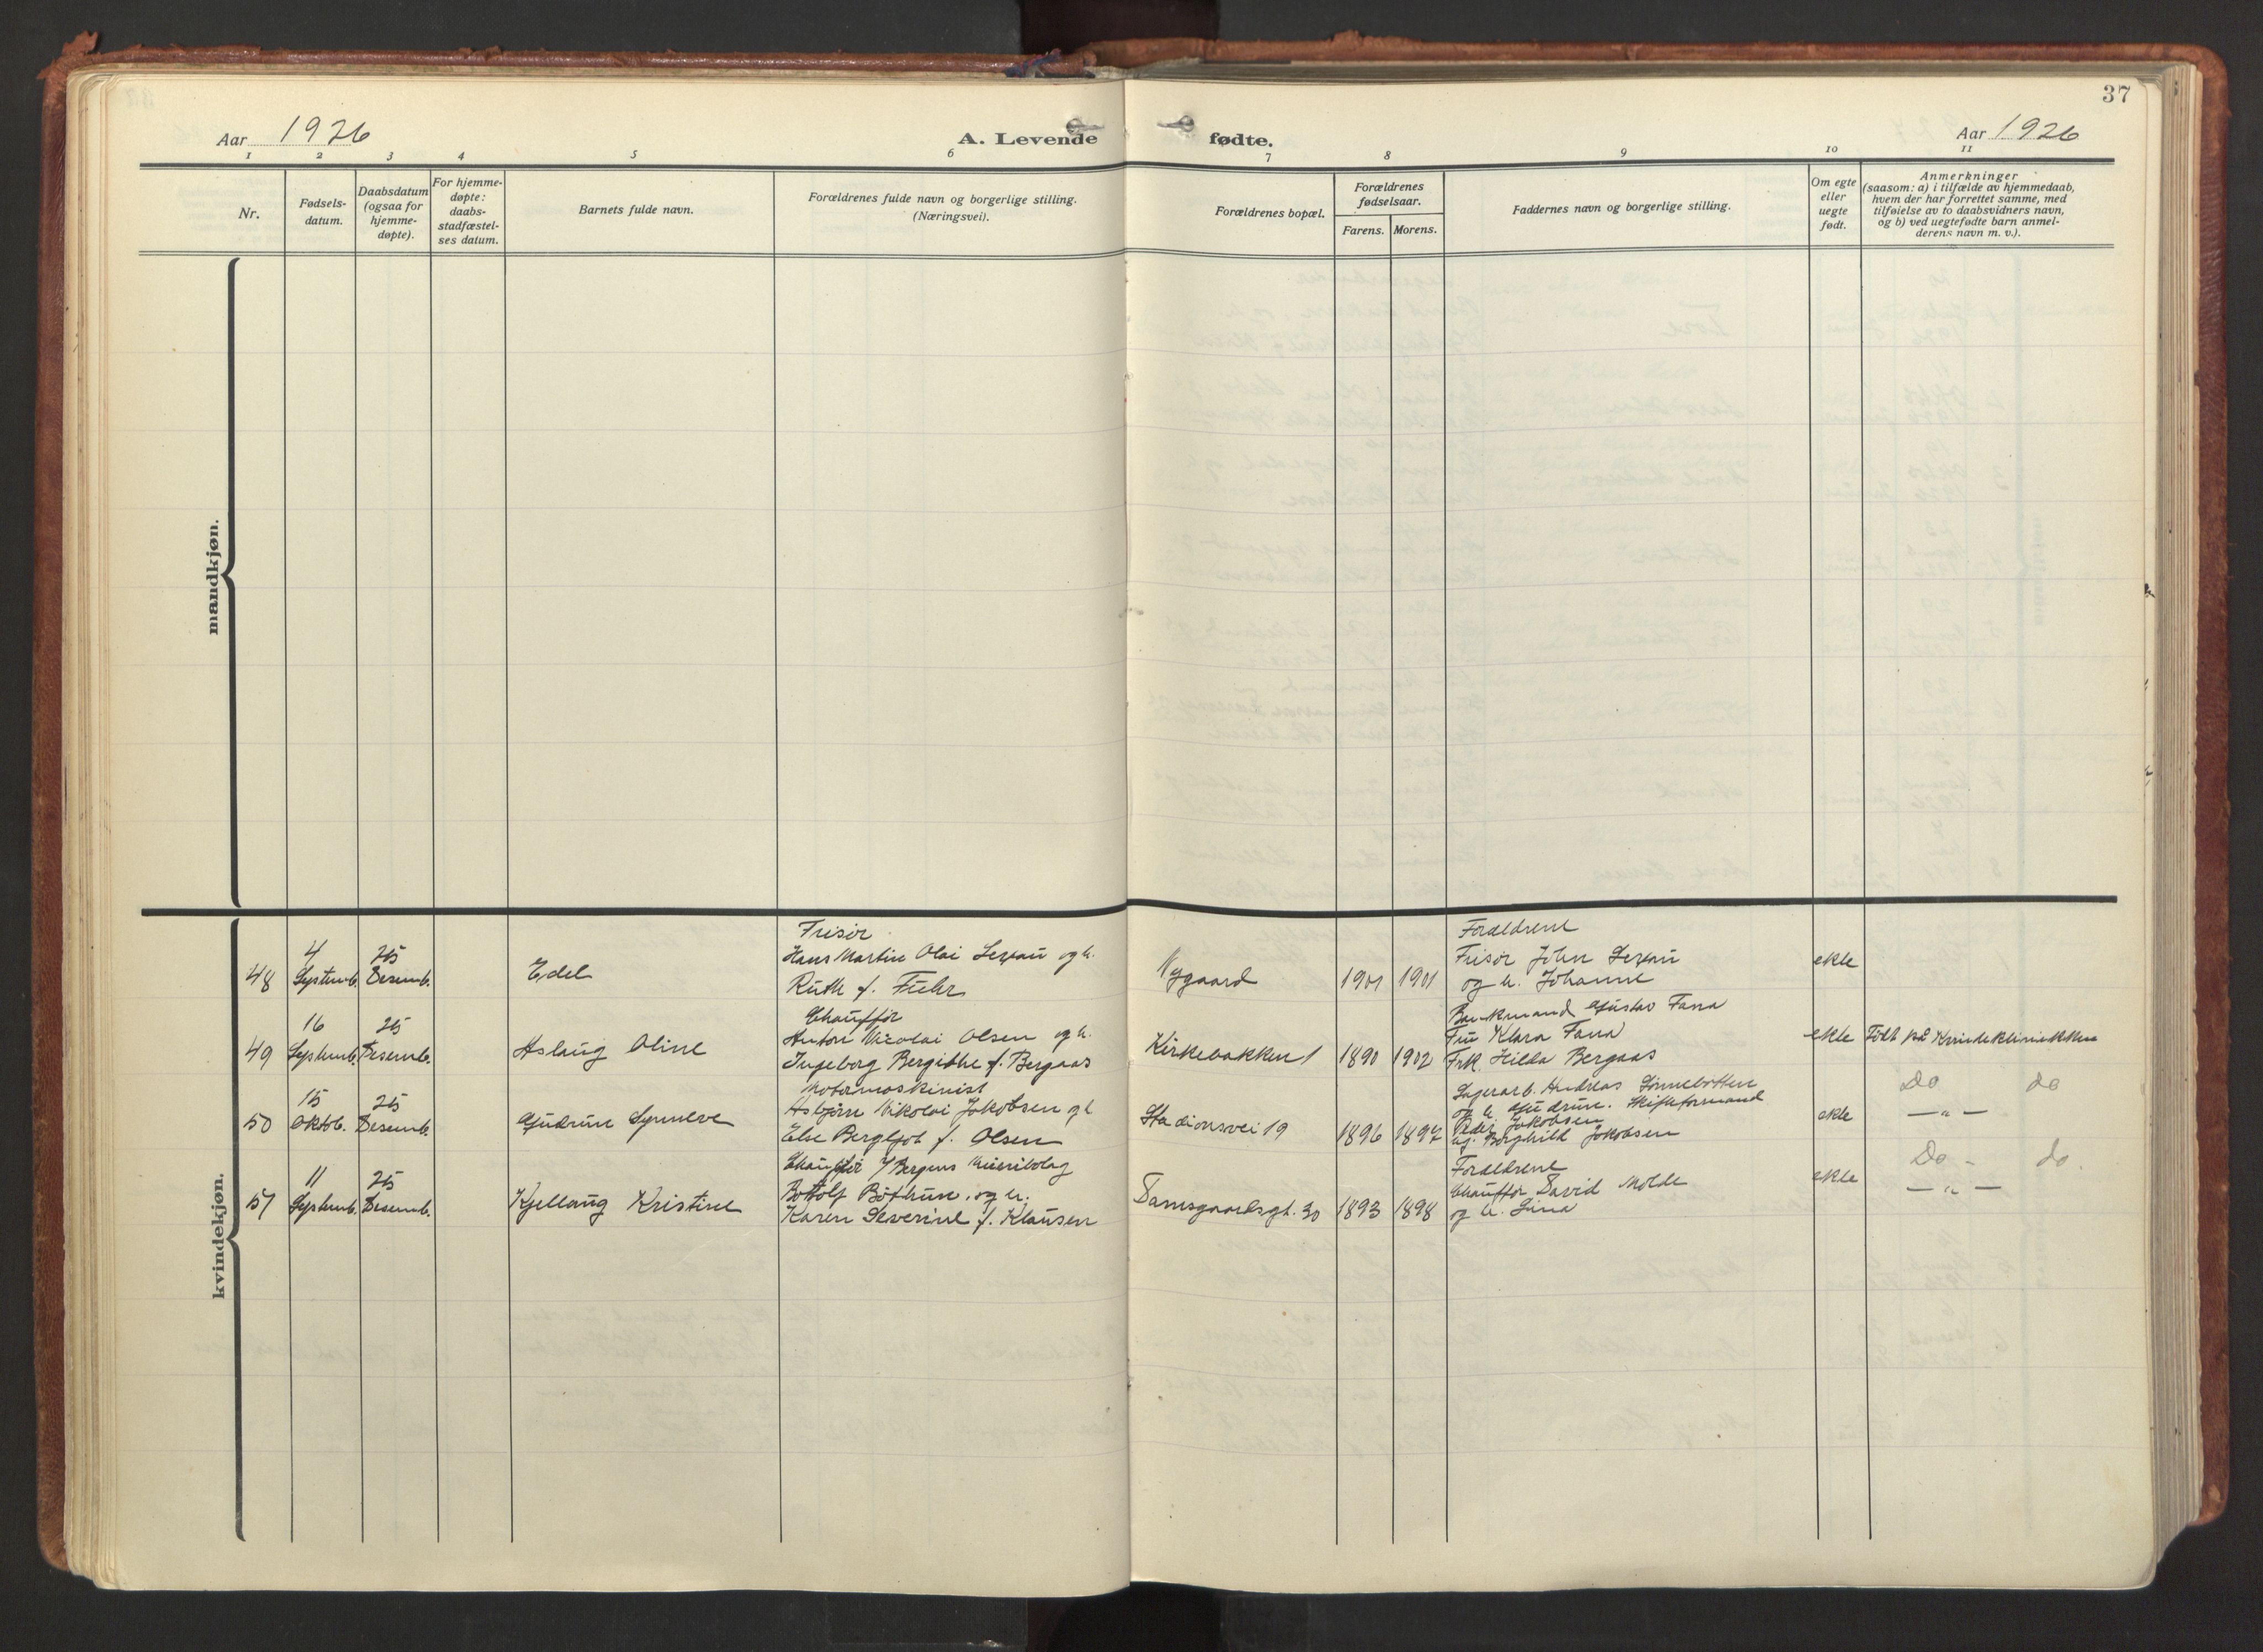 37
Aar 1926
A. Levende
fødte.
Aar 1926
1 2 3 4 5 6 7 8 9 10 11
Nr.
Fødsels-
datum.
Daabsdatum
(ogsaa for
hjemme-
døpte).
For hjemme-
døpte:
daabs-
stadfæstel-
ses datum.
Barnets fulde navn.
Forældrenes fulde navn og borgerlige stilling.
(Næringsvei).
Forældrenes bopæl.
Forældrenes
fødselsaar.
Farens. Morens.
Faddernes navn og borgerlige stilling.
Om egte
eller
uegte
født.
Anmerkninger
(saasom: a) i tilfælde av hjemmedaab,
hvem der har forrettet samme, med
tilføielse av to daabsvidners navn,
og b) ved uegtefødte barn anmel-
derens navn m. v.).
mandkjøn.
kvindekjøn.
48
4
Septemb.
25
Desemb.
Edel
Frisör
Hans Martin Olai Lexau og h.
Ruth f. Fuhr
Nygaard
1901 1901
Foreldrene
Frisör John Lexau
og h. Johanne
ekte
49
16
Septemb.
25
Desemb.
Aslaug Oline
Chaufför
Anton Nicolai Olsen og h.
Ingeborg Bergithe f. Bergaas
Kirkebakken 1
1890 1902
Bankmand Gustav Fana
Fru Klara Fana
Frk. Hilda Bergaas
ekte
Födt på Kvindeklinikken
50
15
Oktob.
25
Desemb.
Gudrun Synneve
Motormaskinist
Asbjörn Nikolai Jakobsen og h
Else Bergljot f. Olsen
Stadionsvei 19
1896 1897
Lagerarb. Andreas
og h. Gudrun. Skifteformand
Peder Jakobsen
og Borghild Jakobsen
ekte
Do do
— " —
51
11
Septemb.
25
Desemb.
Kjellaug Kristine
Chaufför i/ Bergens Meieribolag
Bottolf Böthun og h.
Karen Severine f. Klausen
Damsgaardsgt. 30
1893 1898
Foreldrene
Chaufför David Molde
og h. Lina
ekte
Do - do.
— " —